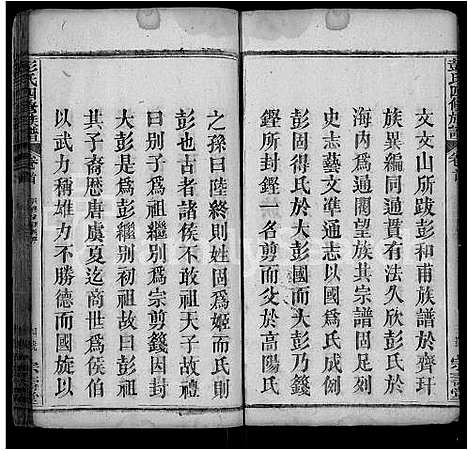 文文山所跋彭和甫族譜於齊玕
族異編同通貫有法久欣彭氏於
海内為通閥望族其宗譜固足列
史志藝文凖通志以國爲氏成例
彭固得氏於大彭國而溯得國於
鏗所封鏗一名剪而出於高陽氏
之孫曰陸終則姓因爲姬而氏則
彭也古者諸侯不敢祖天子
曰别子爲祖繼别爲宗剪籛因封
大彭是爲彭繼别初祖故曰彭祖
其子裔歷唐虞夏迄商世爲侯伯
以武力稱雄力不勝德而國旋以
彭氏四修族譜
卷首
彭氏四修族譜
卷首